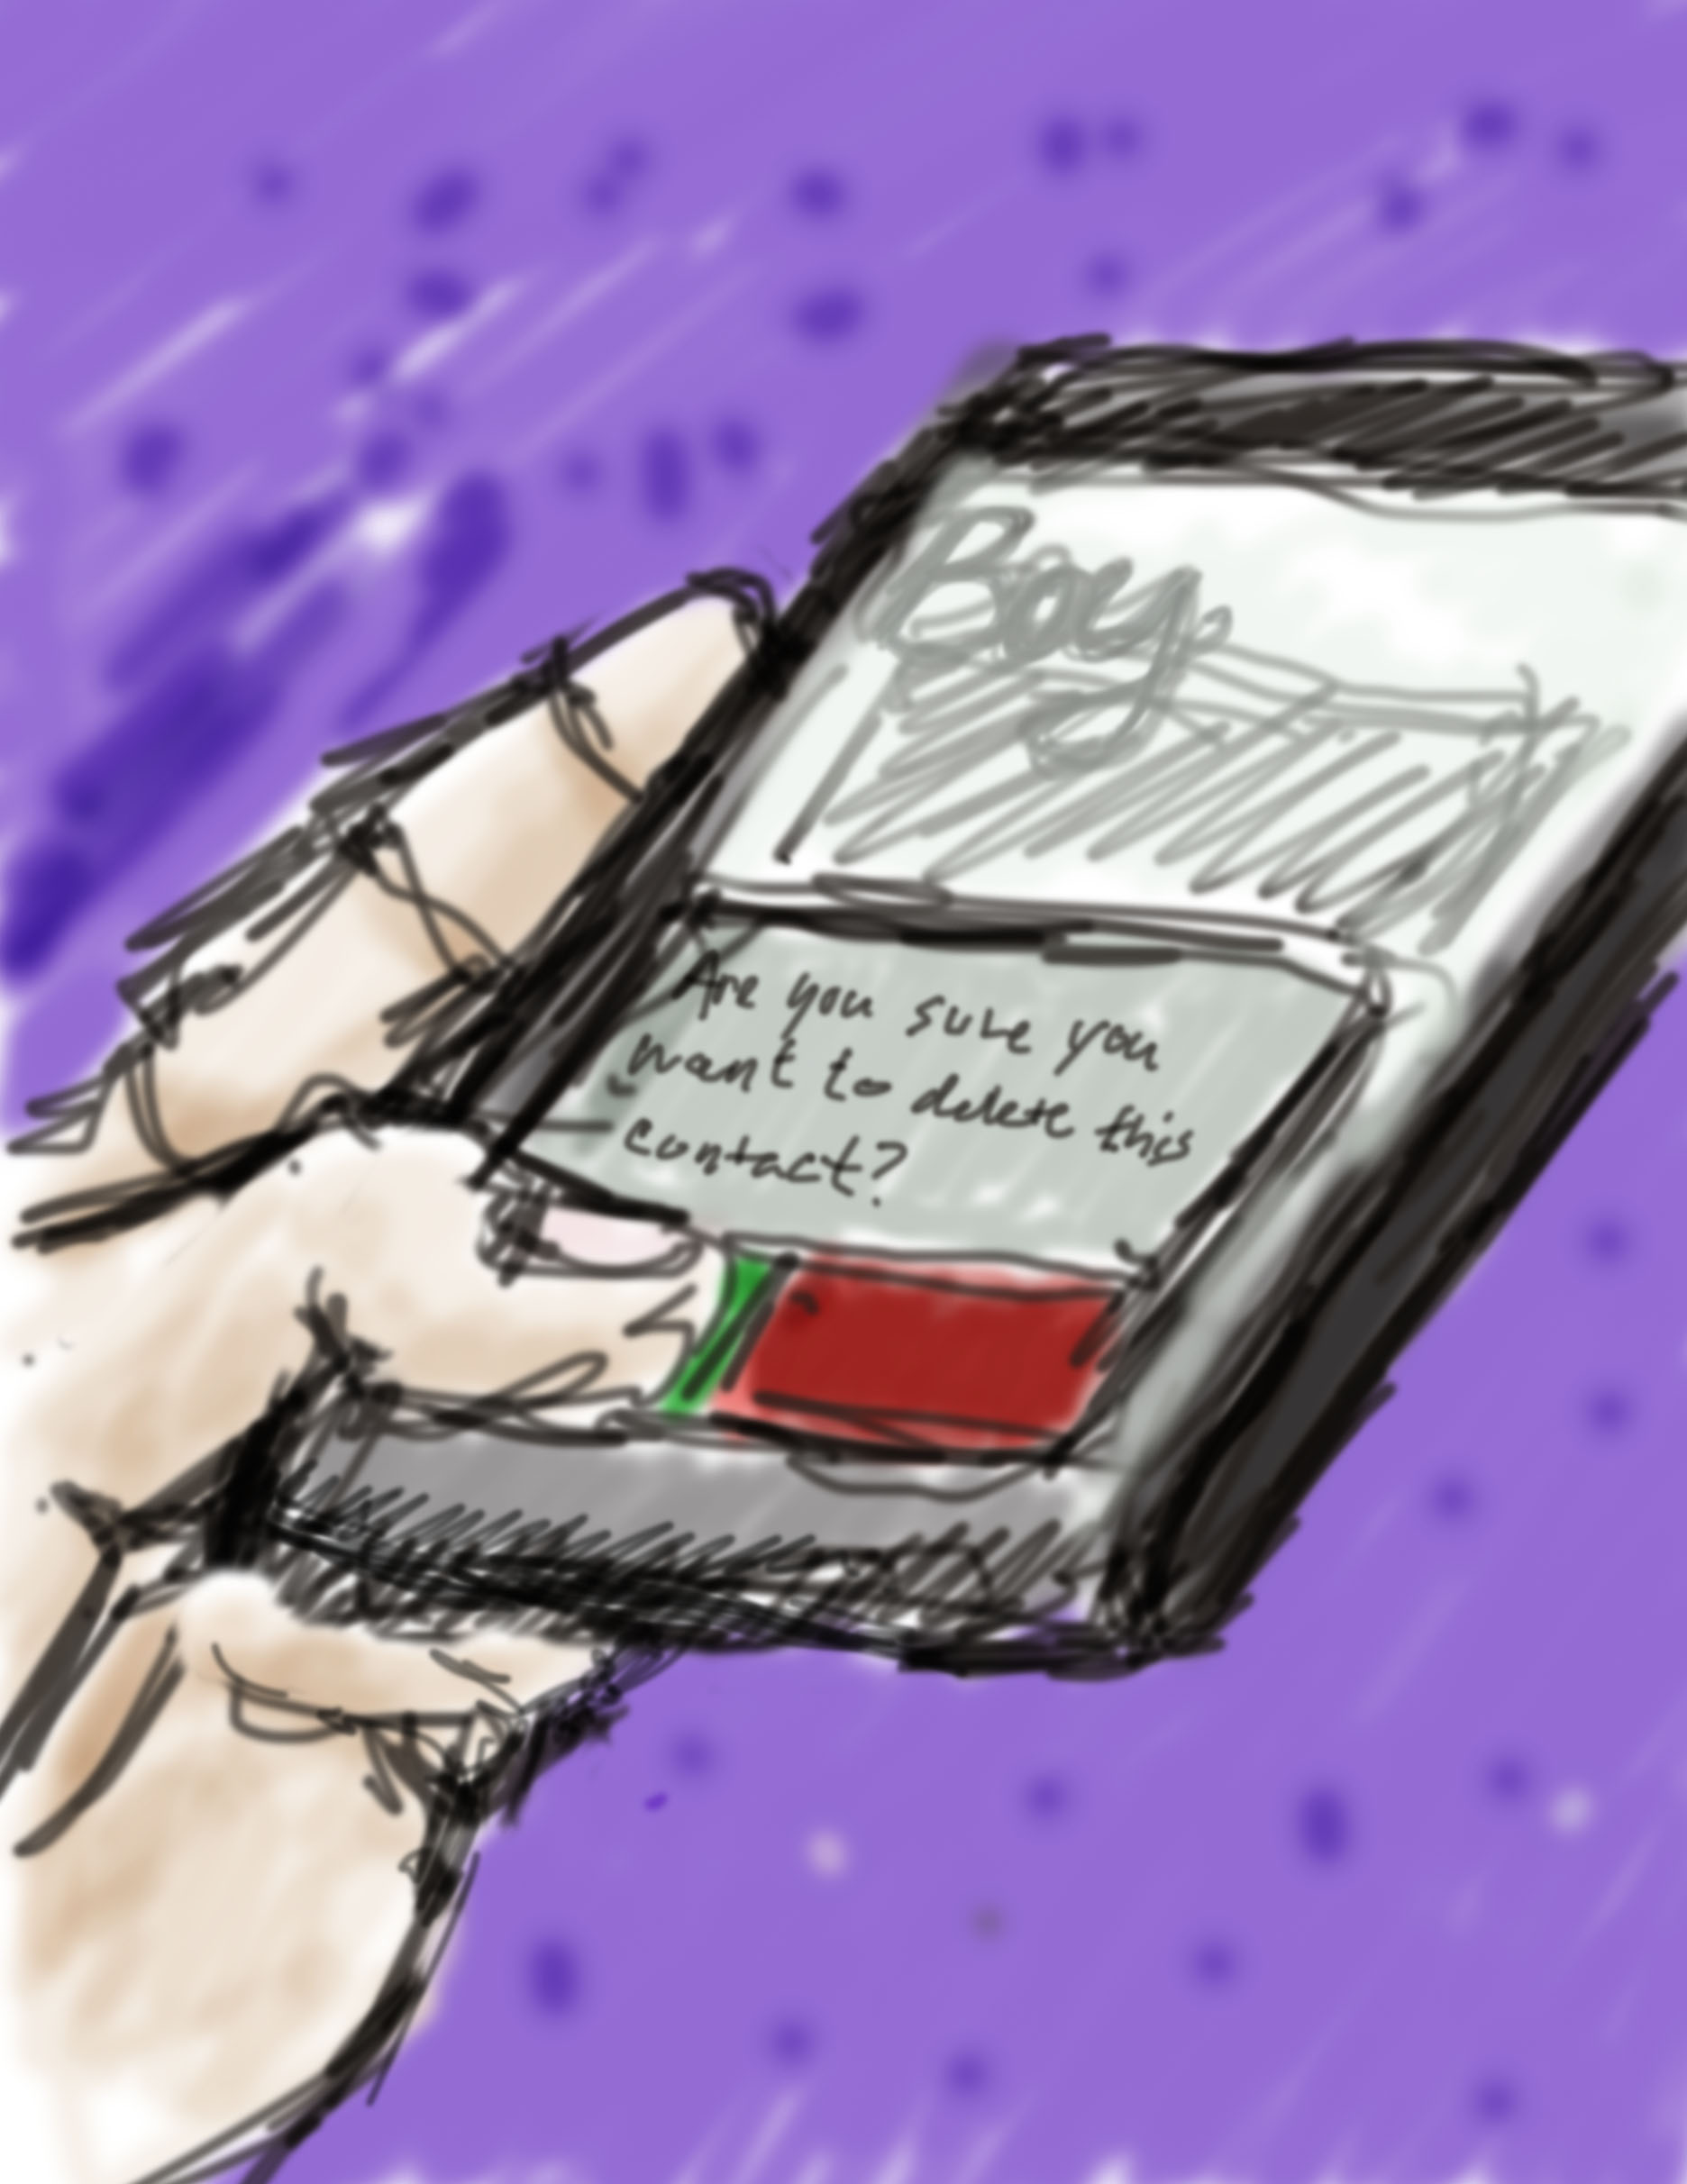 Boy.
Are you sure you
want to delete this
contact?